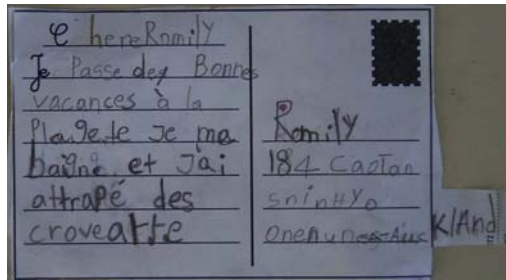 ChereRomilY
Je Passe dey Bonnes
vacances à la
Plagete Je me
baigne et J'ai
attrapé des
crovearte
RomilY
184 CapTan
sninHYo